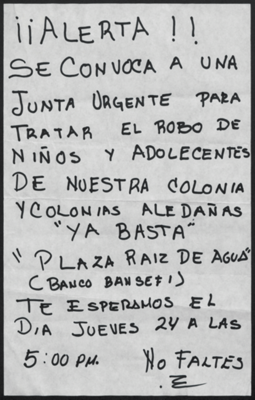 ¡¡ALERTA!!
SE CONVOCA A UNA
JUNTA URGENTE PARA
TRATAR EL ROBO DE
NIÑOS Y ADOLECENTES
DE NUESTRA COLONIA
Y COLONIAS ALEDAÑAS
"YA BASTA"
"PLAZA RAIZ DE AGUA"
(BANCO BANSEFI)
TE ESPERAMOS EL
DIA JUEVES 24 A LAS
5:00 PM. NO FALTES